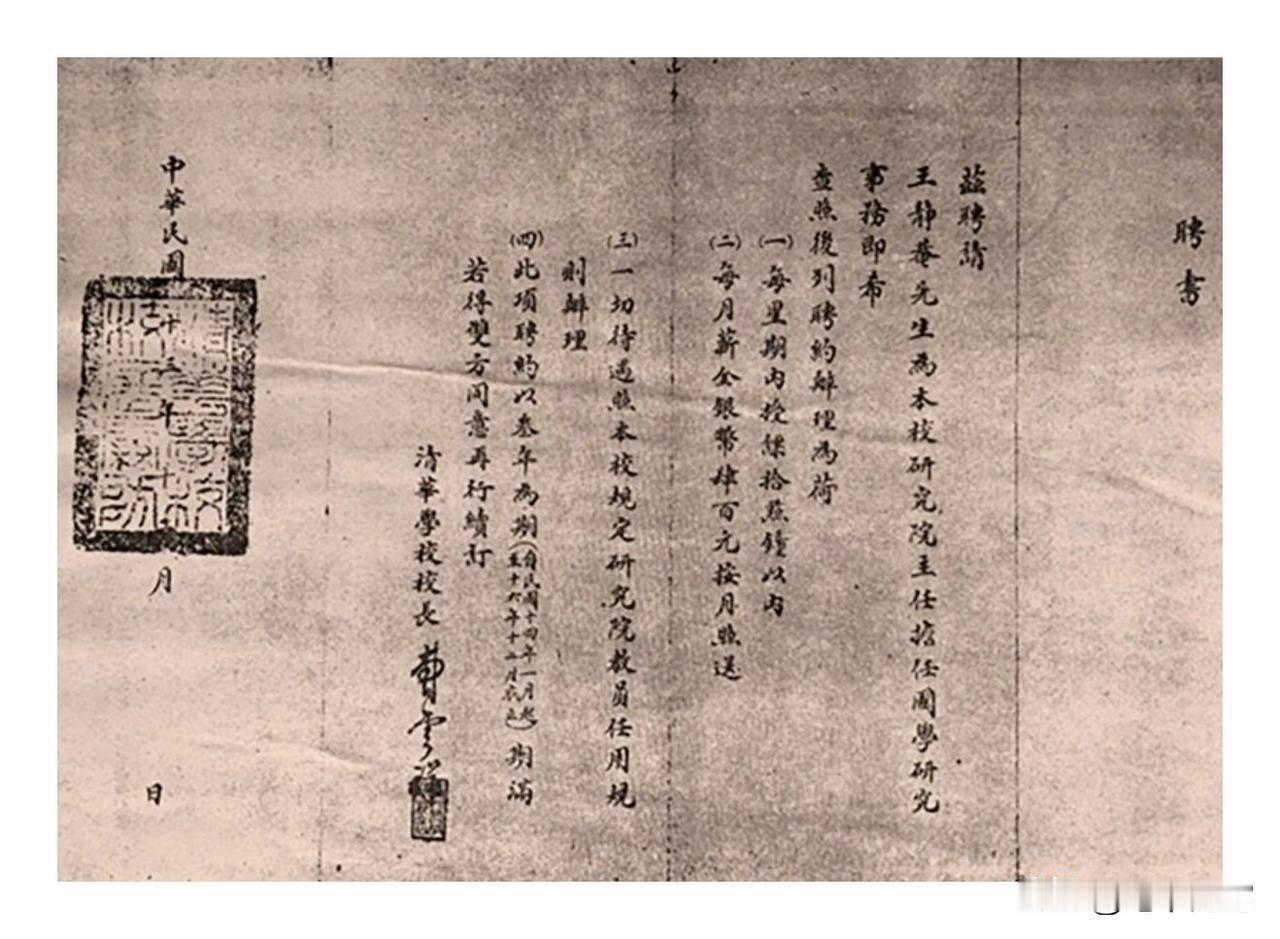 聘書
茲聘請
王靜菴先生為本校研究院主任擔任國學研究
事務即希
查照後列聘約辦理為荷
(一)每星期內授課拾點鐘以內
(二)每月薪金銀幣肆百元按月照送
(三)一切待遇照本校規定研究院教員任用規
則辦理
(四)此項聘約以叁年為期(自民國十四年一月起至十六年十二月底止)期滿
若得雙方同意再行續訂
清華學校校長 曹雲祥
中華民國十三年十月 日